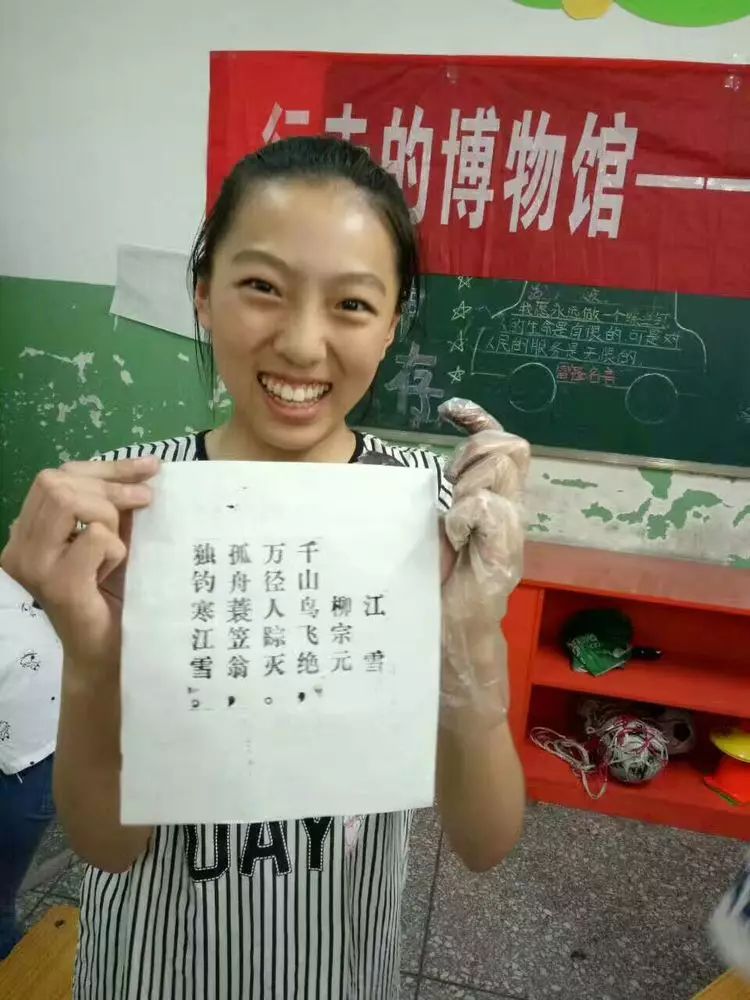 行走的博物馆——
我愿永远做一个螺丝钉
人的生命是有限的,可是对
人民的服务是无限的
雷锋名言
存
江雪
柳宗元
千山鸟飞绝,
万径人踪灭。
孤舟蓑笠翁,
独钓寒江雪。
DAY